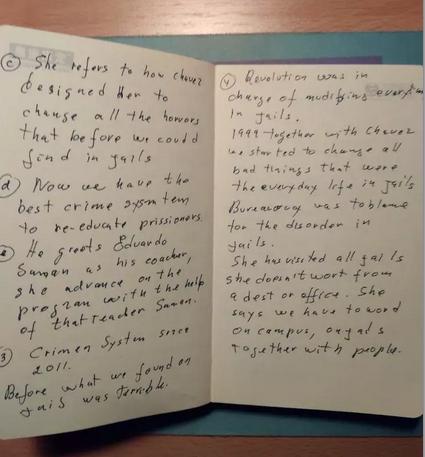 c) She refers to how Chavez
designed her to
change all the horrors
that before we could
find in jails
d) Now we have the
best crime system
to re-educate prissioners.
e) He greets Eduardo
Saman as his coacher,
she advance on the
program with the help
of that teacher Samen.
3) Crimen System since
2011.
Before what we found on
jais was terrible.
4) Revolution was in
charge of modifing
in jails.
1999 together with Chavez
we started to change all
bad things that were
the everyday life in jails
Bureaocray was to blame
for the disorder in
jails.
She has visited all jails
she doesn't wort from
a dest or office. She
says we have to word
on campus, on
together with people.